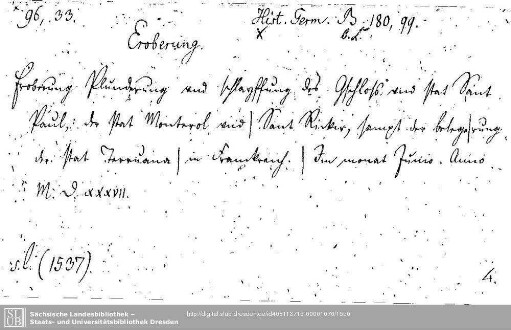 96, 33.
Hist. Germ. B 180, 99.
Eroberung.
Eroberung Plunderung vnd schlayffung des Gschloss vnd stat Sant
Paul, der stat Monterol vnd | Sant Ricker, sampt der belege|rung
der stat Terruana | in Franckreich. | Im monat Junio. Anno
M. D. xxxvii.
s. l. (1537).
4.
Sächsische Landesbibliothek –
Staats- und Universitätsbibliothek Dresden